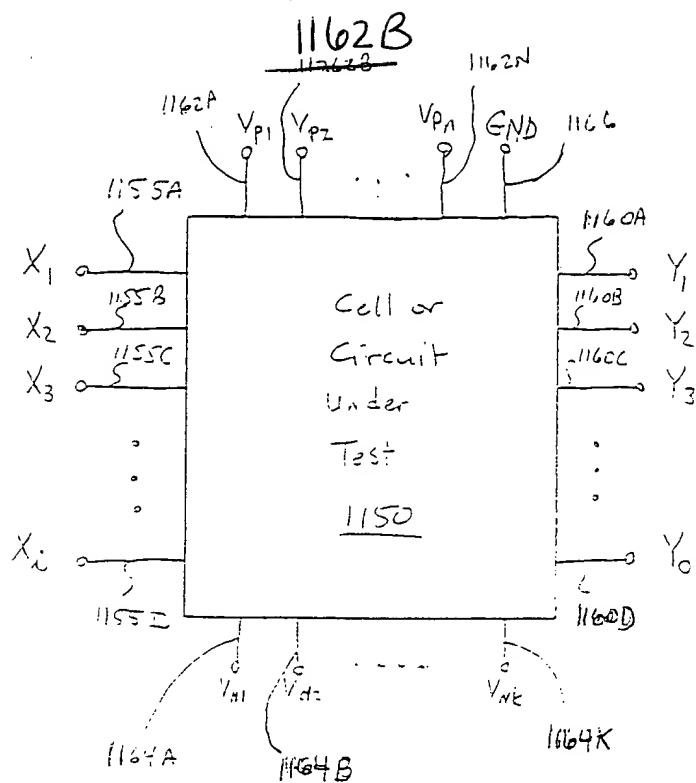 1162B
1162A
1162N
VP1
VP2
VPn
GND
1166
1155A
1160A
X1
Y1
1155B
1160B
X2
Y2
1155C
1160C
X3
Y3
Cell or
Circuit
Under
Test
1150
Xi
Y0
1155I
1160D
VN1
VN2
VNK
1164A
1164B
1164K